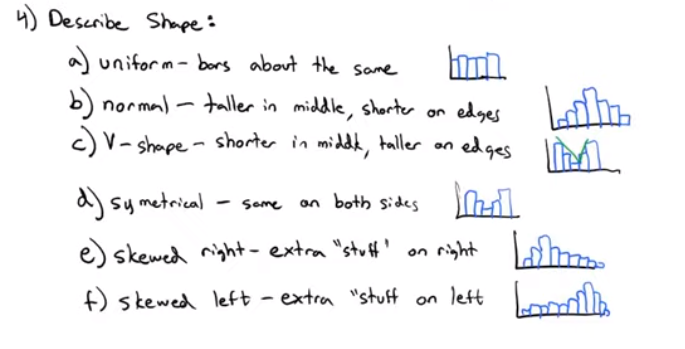 4) Describe Shape:
a) uniform - bars about the same
b) normal - taller in middle, shorter on edges
c) V-shape - shorter in middle, taller on edges
d) symetrical - same on both sides
e) skewed right - extra "stuff" on right
f) skewed left - extra "stuff on left